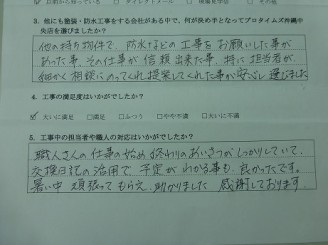 3. 他にも塗装・防水工事をする会社がある中で、何が決め手となってプロタイムズ沖縄中
央店を選びましたか?
他の持ち物件で、防水などの工事をお願いした事が
あった事、その仕事が信頼出来た事、特に担当者が
細かく相談にのってくれ提案してくれた事が安心し選びました
4. 工事の満足度はいかがでしたか?
☑大いに満足 □満足 □ふつう □やや不満 □大いに不満
5. 工事中の担当者や職人の対応はいかがでしたか?
職人さんの仕事の始め終わりのあいさつがしっかりしていて、
交換日記の活用で、予定がわかる事も良かったです。
暑い中 頑張ってもらえ、助かりました 感謝しております。